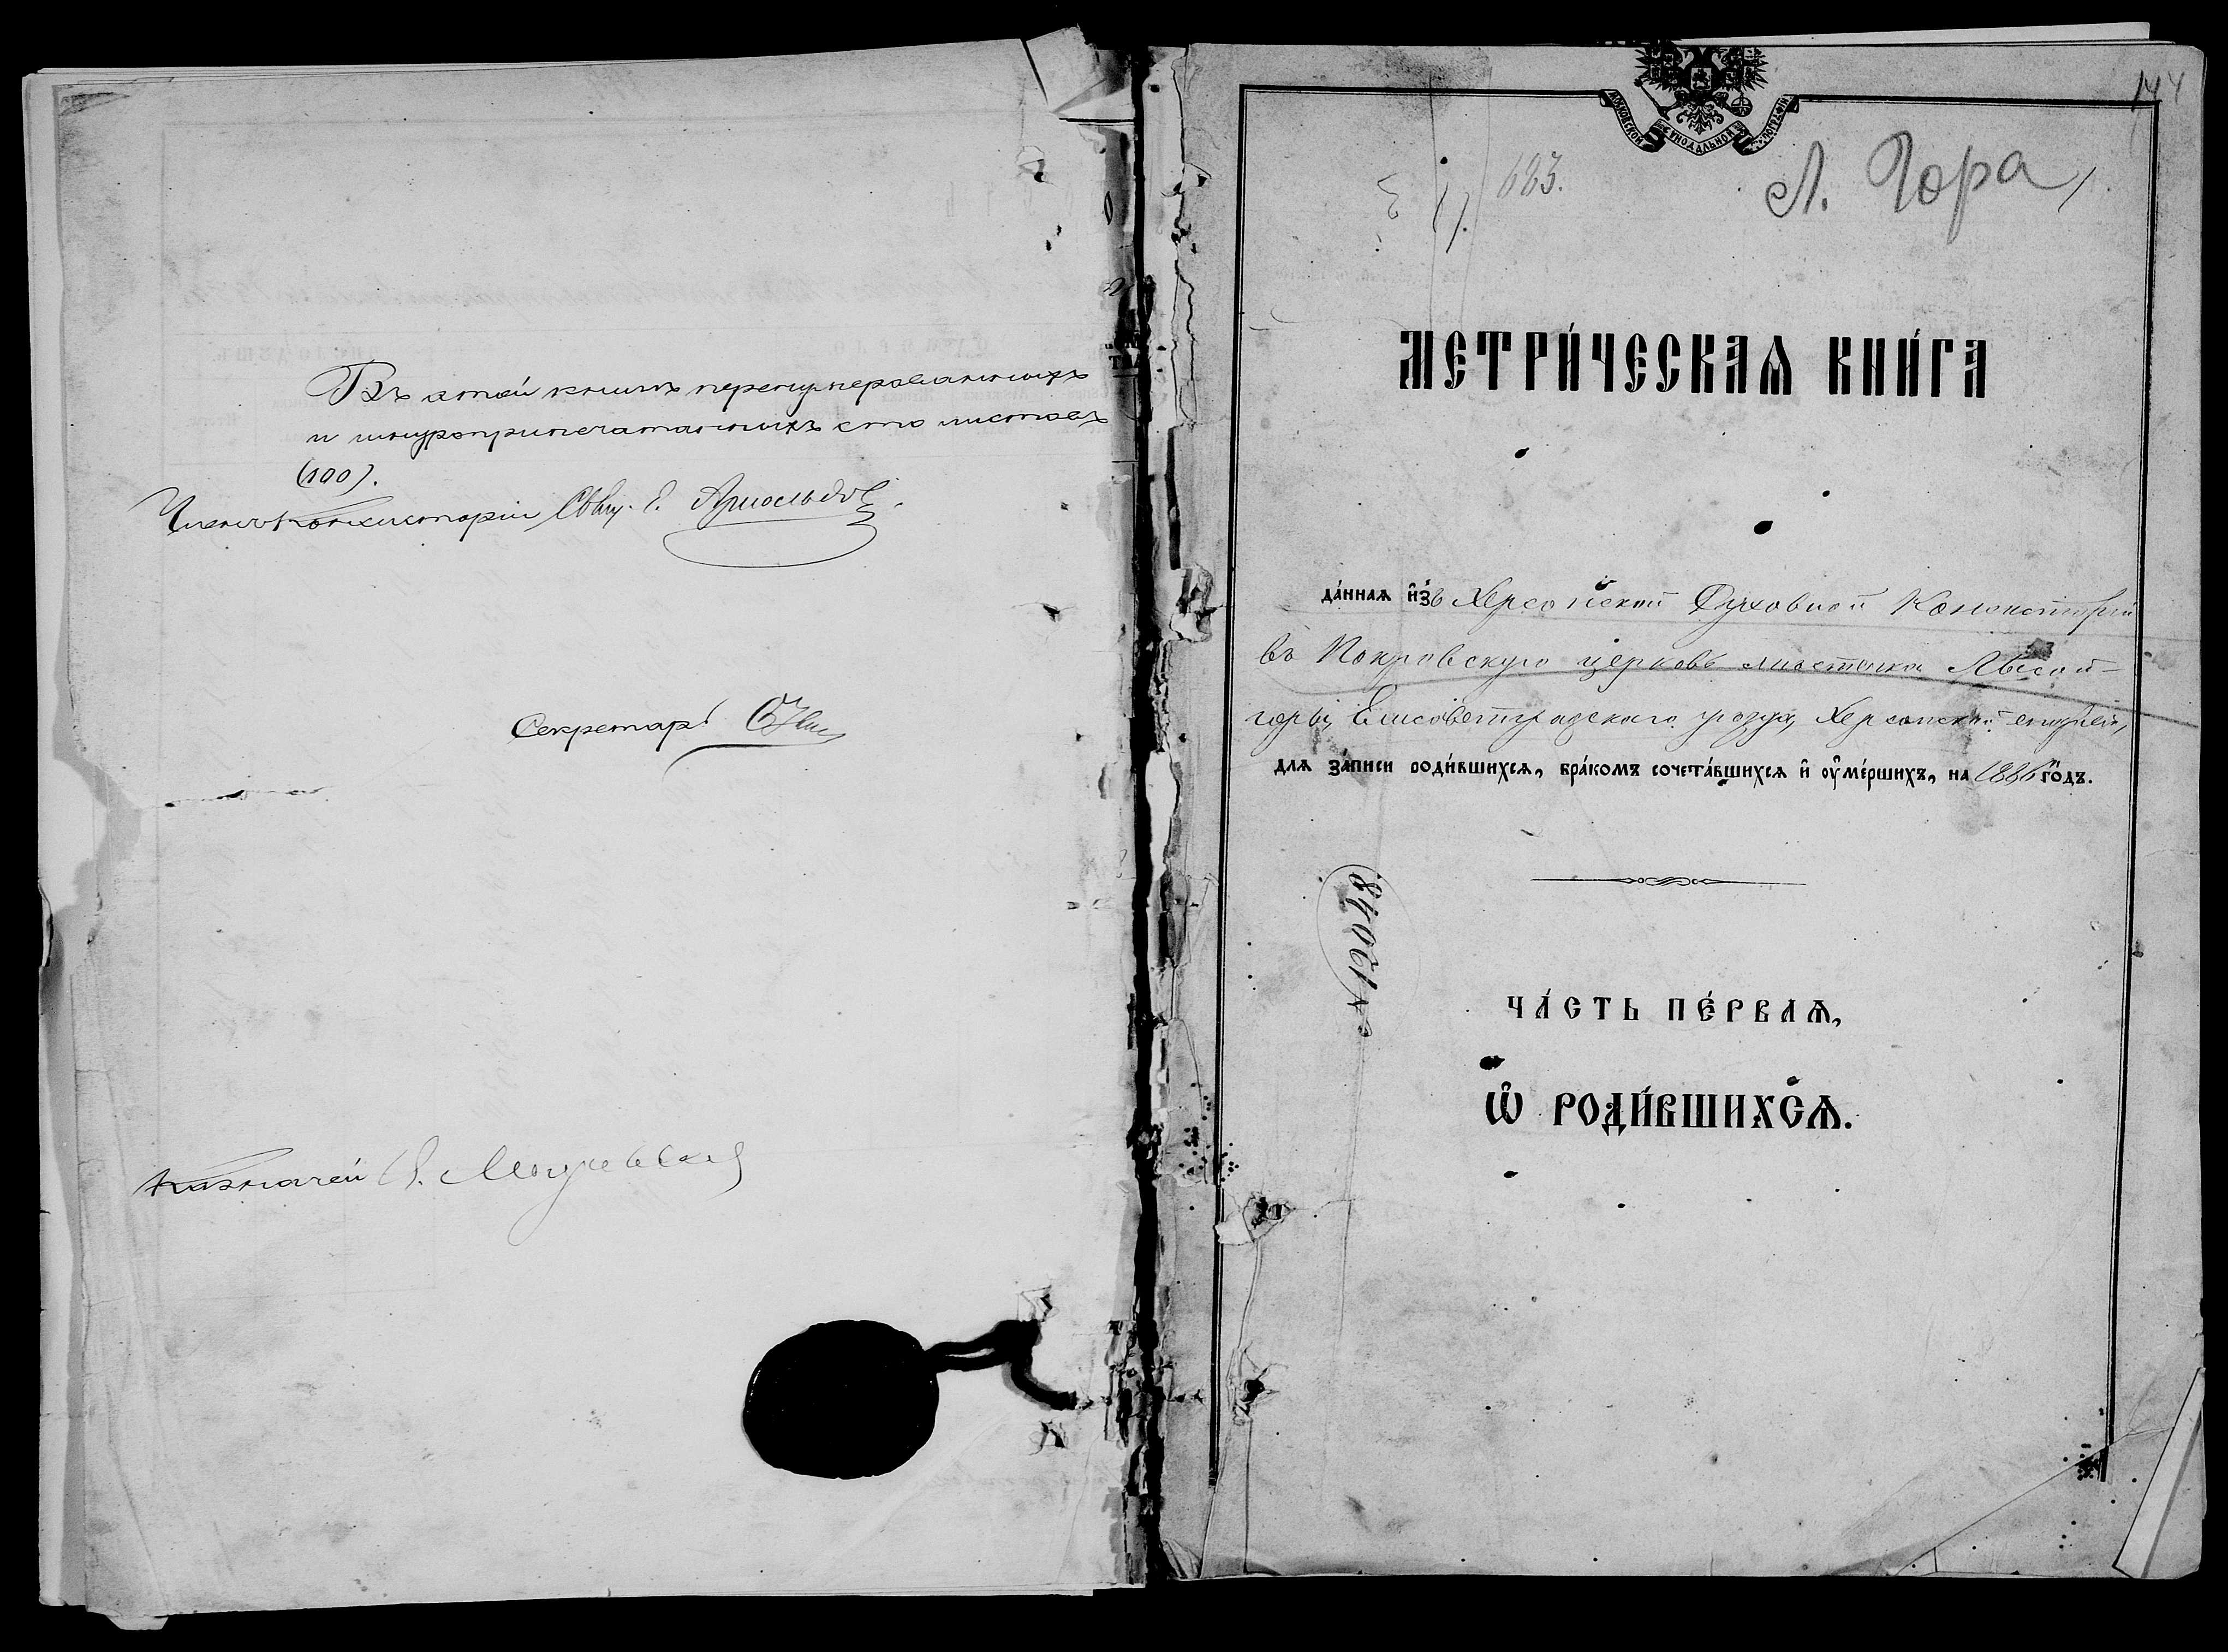 Въ этой книгѣ перенумерованныхъ
и шнуроприпечатанныхъ сто листовъ
(100).
Членъ Консисторіи Свящ. Е. Арнольдов
Секретарь
Казначей
144
683.
Л. Гора
МОСКОВСКОЙ СѴНОДАЛЬНОЙ ТИПОГРАФІИ
МЕТРИ́ЧЕСКАѦ КНИ́ГА
да́ннаѧ и҆́зъ Херсонской Духовной Консисторіи
въ Покровскую церковь мѣстечка Лысой-
горы, Елисаветградскаго уѣзда, Херсонской епархіи,
длѧ за́писи роди́вшихсѧ, бра́комъ сочета́вшихсѧ и҆ ѹ҆ме́ршихъ, на 1886 го́дъ.
№ 19048
ЧА́СТЬ ПЕ́РВАѦ,
Ѽ РОДИ́ВШИХСѦ.